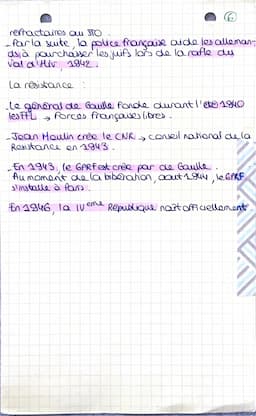 6
réfractaires au STO.
- Par la suite, la police française aide les alleman-
ds à pourchasser les juifs lors de la rafle du
Val d'Hiv, 1942.
La résistance :
- Le général de Gaulle fonde durant l'été 1940
les FFL → Forces françaises libres.
- Jean Moulin crée le CNR → conseil national de la
Résistance en 1943.
- En 1943, le GPRF est crée par de Gaulle.
Au moment de la libération, aout 1944, le GPRF
s'installe à Paris.
En 1946, la IVème République naît officiellement.